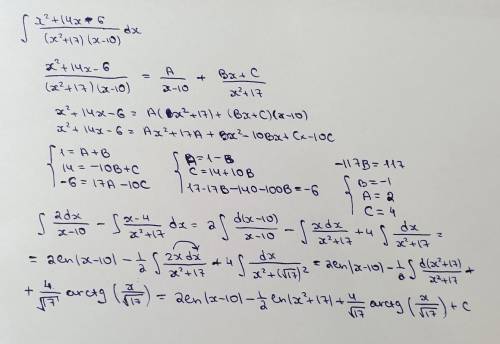 ∫ x²+14x-6 / (x²+17)(x-10) dx
x²+14x-6 / (x²+17)(x-10) = A / x-10 + Bx+C / x²+17
x²+14x-6 = A(x²+17) + (Bx+C)(x-10)
x²+14x-6 = Ax²+17A + Bx²-10Bx+Cx-10C
{ 1 = A+B
14 = -10B+C
-6 = 17A-10C
{ A = 1-B
C = 14+10B
17-17B-140-100B = -6
-117B = 117
{ B = -1
A = 2
C = 4
∫ 2dx / x-10 - ∫ x-4 / x²+17 dx = 2∫ d(x-10) / x-10 - ∫ xdx / x²+17 + 4∫ dx / x²+17 =
= 2ln|x-10| - 1/2 ∫ 2xdx / x²+17 + 4∫ dx / x²+(√17)² = 2ln|x-10| - 1/2 ∫ d(x²+17) / x²+17 +
+ 4/√17 arctg(x/√17) = 2ln|x-10| - 1/2 ln|x²+17| + 4/√17 arctg(x/√17) + C